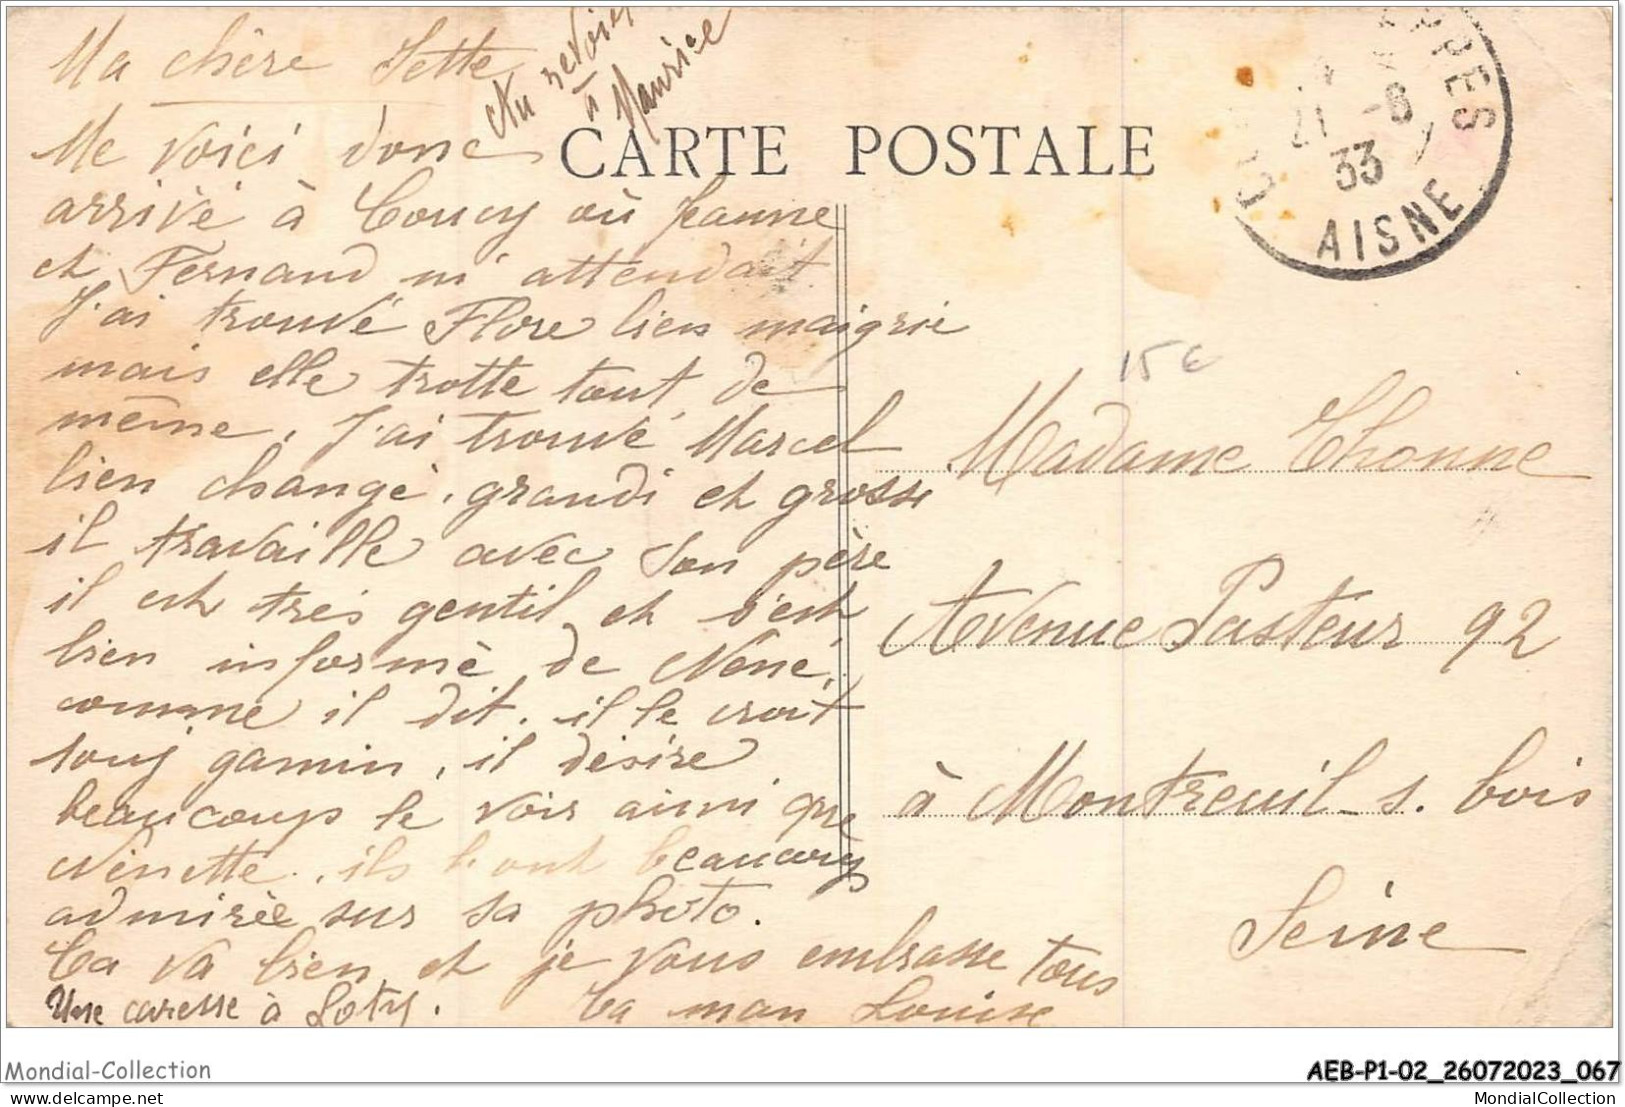 Ma chère Sette
Au revoir
à Maurice
Me voici donc
arrivé à Coucy où Jeanne
et Fernand m'attendait
J'ai trouvé Flore bien maigrie
mais elle trotte tout de
même, J'ai trouvé Marcel
bien changé, grandi et grossi
il travaille avec son père
il est très gentil et s'est
bien informé de Néné,
comme il dit. il le croit
touj gamin, il désire
beaucoup le voir ainsi que
Nénette, ils l'ont beaucoup
admirée sur sa photo.
Ca va bien et je vous embrasse tous
Ta man Louise
Une caresse à Loty.
CARTE POSTALE
PPES
21 -8
33
AISNE
15€
Madame Thonne
Avenue Pasteur 92
à Montreuil s. bois
Seine
Mondial-Collection
AEB-P1-02_26072023_067
www.delcampe.net
MondialCollection